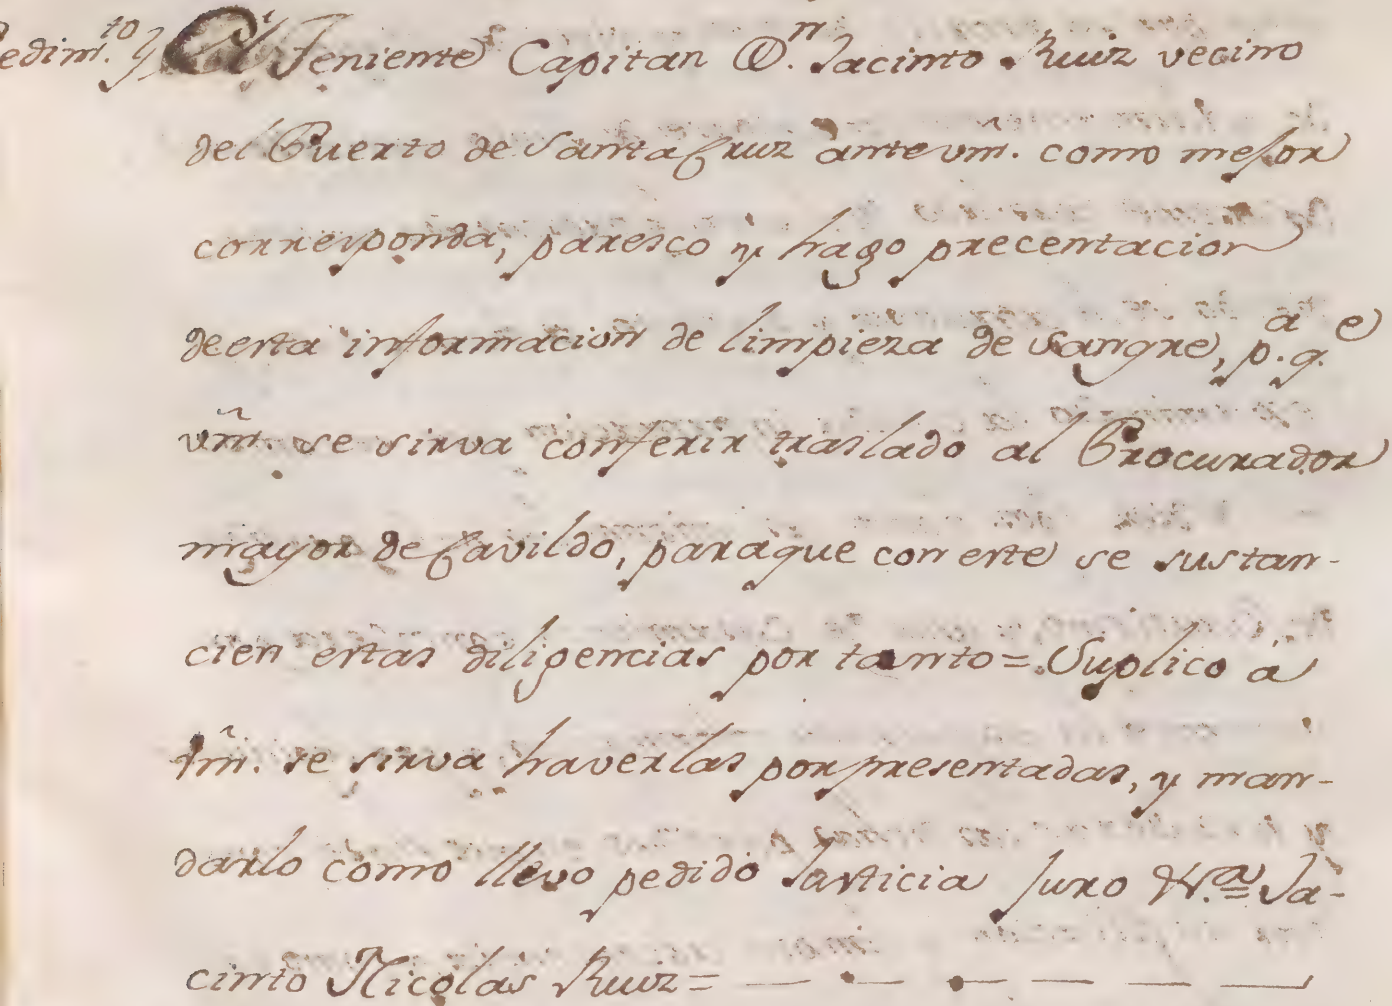 Pedim.to y El Teniente Capitan D.n Jacinto Ruiz vecino
del Puerto de Santa Cruz ante vm̃. como mejor
corresponda, paresco y hago precentacion
de esta informacion de limpieza de sangre, p.a q.e
vm̃. se sirva conferir traslado al Procurador
mayor de Cavildo, paraque con este se sustan-
cien estas diligencias por tanto = Suplico á
vm̃. se sirva haverlas por presentadas, y man-
darlo como llevo pedido Justicia Juro &.a = Ja-
cinto Nicolás Ruiz =